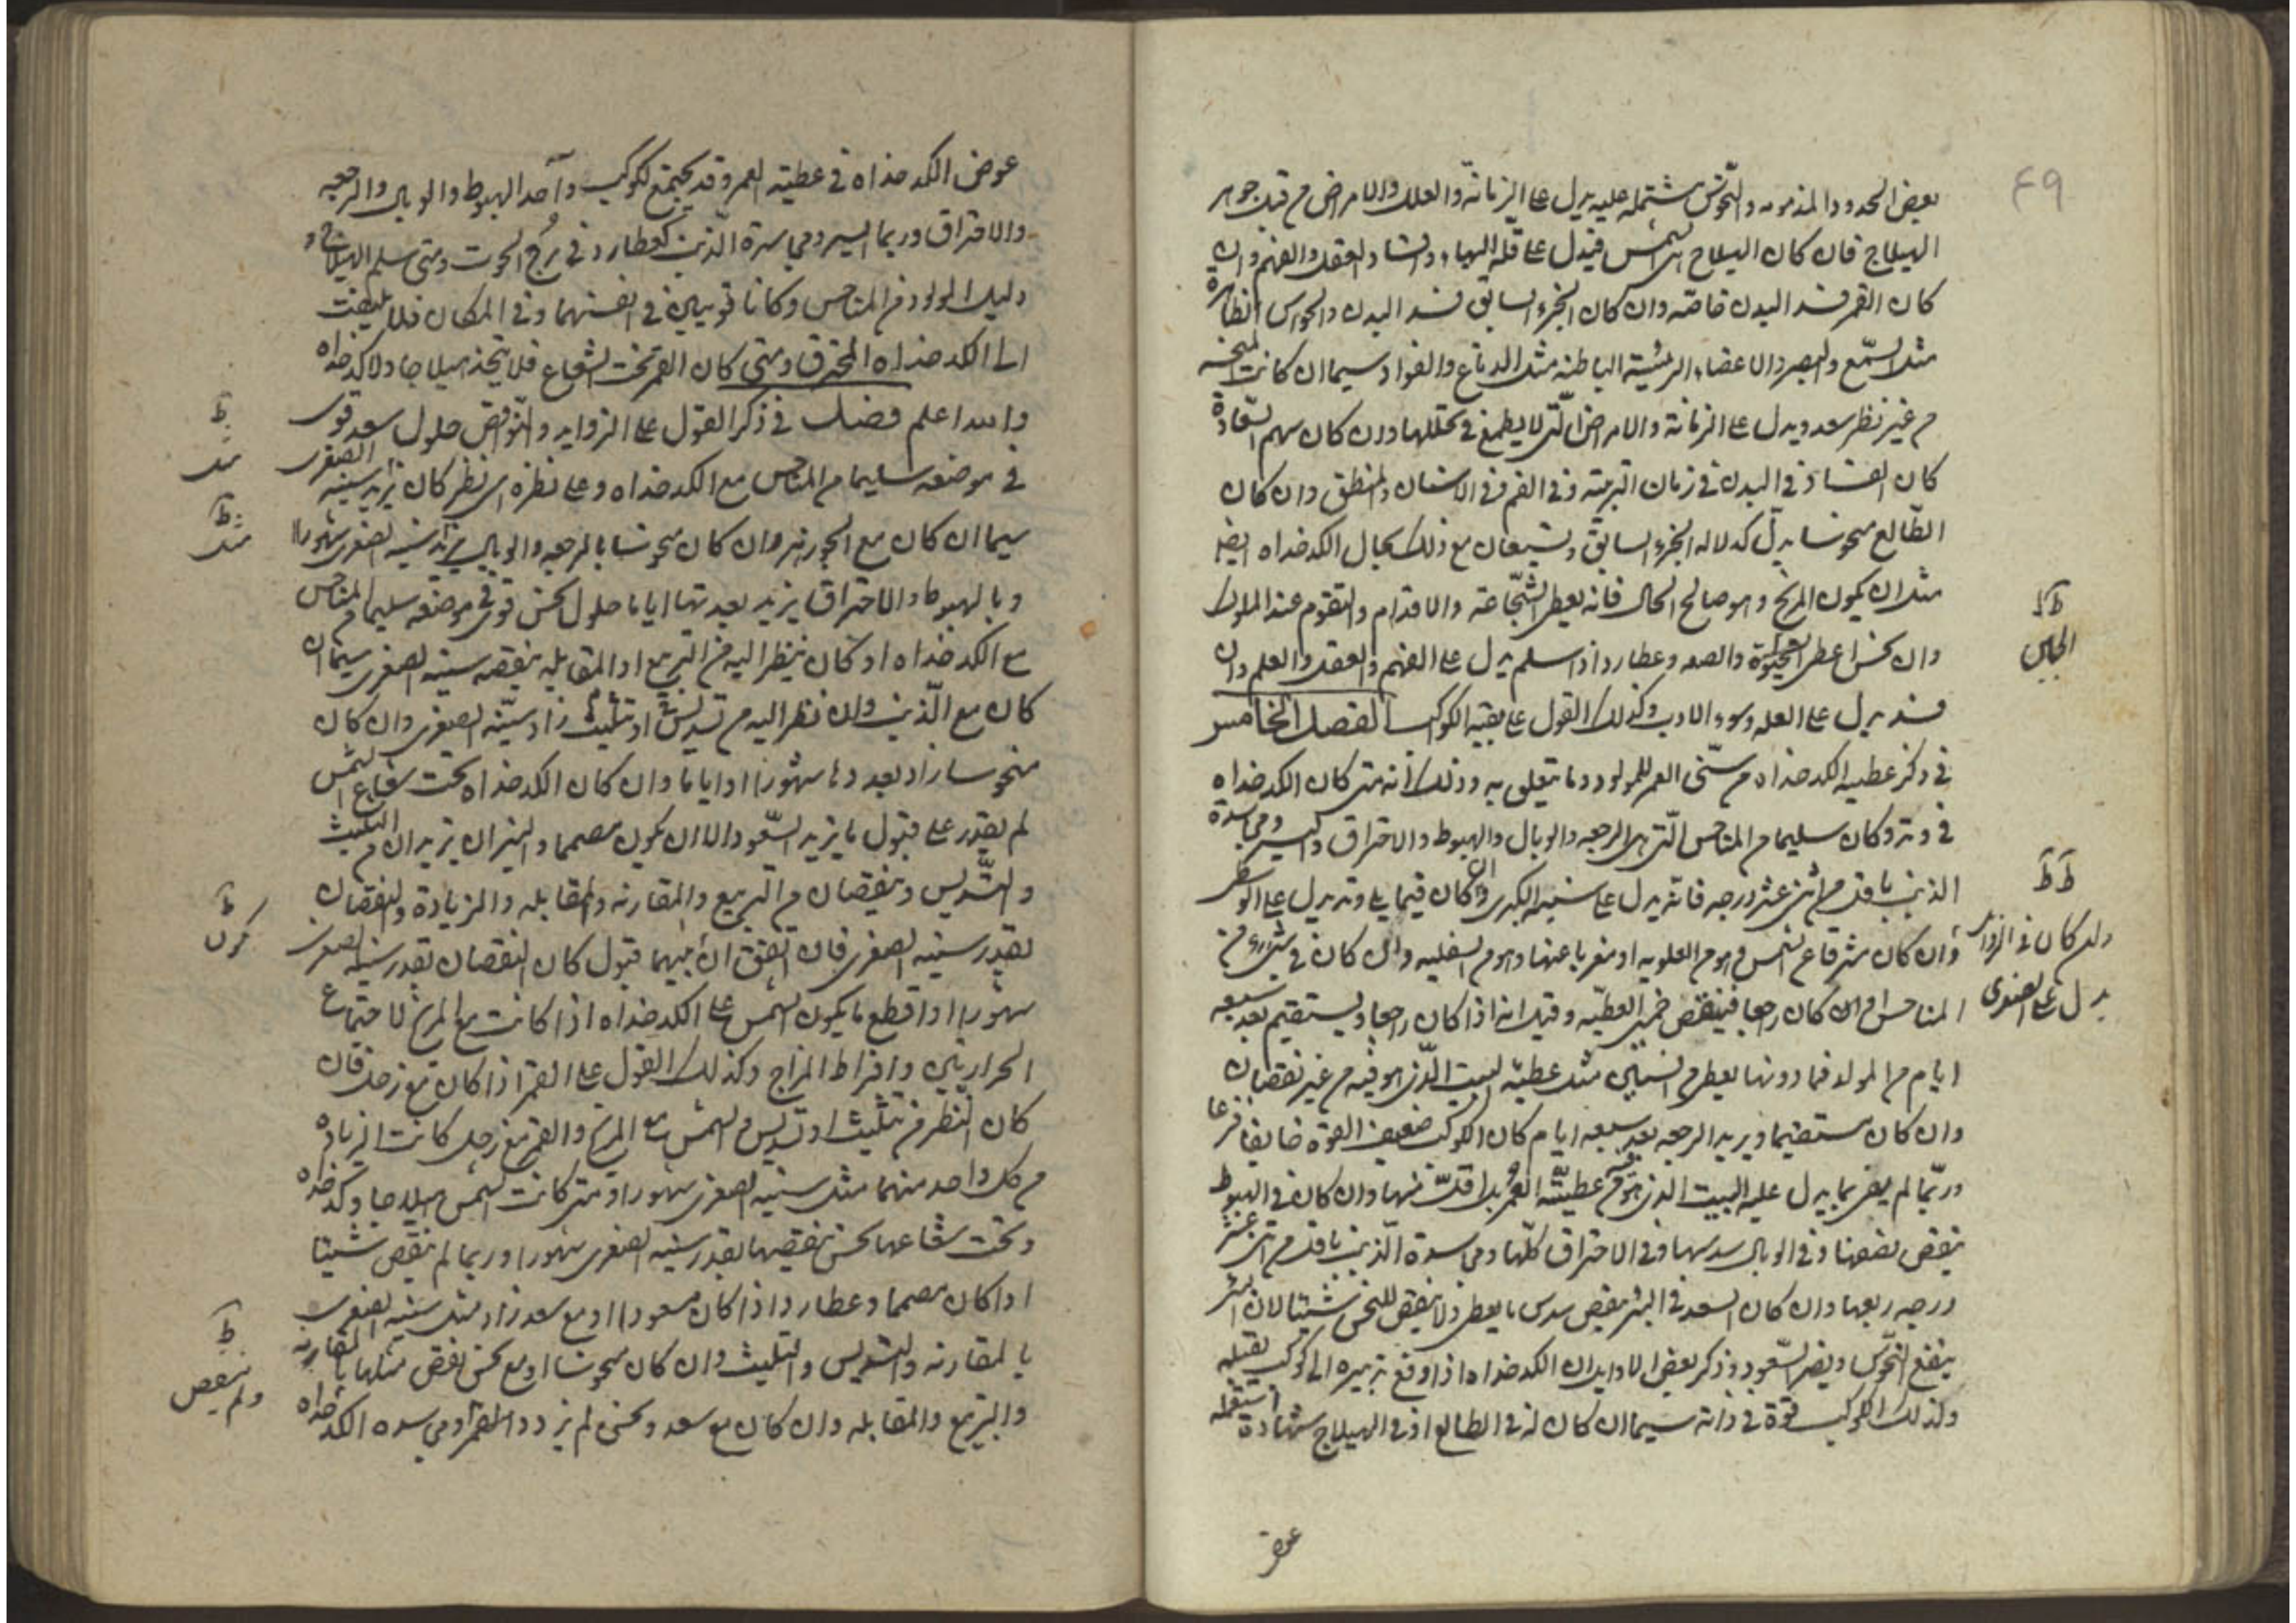 ٤٩
بعض الحدود المذمومه والنحوس مشتمله عليه يدل على الزمانة والعلل والامراض من قبل جوهر
الهيلاج فان كان الهيلاج هى الشمس فيدل على قلة البهاء وفساد العقل والفهم وان
كان القمر فسد البدن خاصه وان كان الجزء السابق فسد البدن والحواس الظاهرة
مثل السمع والبصر والاعضاء الرئيسية الباطنه مثل الدماغ والفواد سيما ان كانت المنحسه
من غير نظر سعد ويدل على الزمانة والامراض التى لا يطمع فى تحللها وان كان سهم السعادة
كان الفساد فى البدن فى زمان التربية وفى الفم وفى الاسنان والمنطق وان كان
الطالع منحوسا يدل كدلاله الجزء السابق ويستعان مع ذلك بحال الكدخداه ايضا
مثل ان يكون المريخ وهو صالح الحال فانه يعطى الشجاعة والاقدام والتقدم عند الملوك
وان نحس اعطى والصعه وعطارد اذا سلم يدل على الفهم والعقل والعلم وان
فسد يدل على العله وسوء الادب وكذلك القول على بقية الكواكب الفصل الخامس
فى ذكر عطيه الكدخداه من سنى العمر للمولود وما يتعلق به وذلك انه متى كان الكدخداه
فى وتد وكان سليما من المناحس التى هى الرجعه والوبال والهبوط والاحتراق والسير ومجاسدة
الذنب باقل من اثنى عشر درجه فانه يدل على سنيه الكبرى وان كان فيما يلى وتد يدل على الوسطى
وان كان فى الزوايل يدل على الصغرى
وان كان مشرقا عن الشمس وهو من العلويه او مغربا عنها وهو من السفليه وان كان فى شىء من
المناحس وان كان راجعا فينقص خمس العطيه وقيل انه اذا كان راجعا ويستقيم بعد سبعه
ايام من المولد فما دونها يعطى من السنين مثل عطية البيت الذى هو فيه من غير نقصان
وان كان مستقيما ويريد الرجعه بعد سبعه ايام كان الكوكب ضعيف القوة خايفا فزعا
وربما لم يف بما يدل عليه البيت الذى هو فيه من عطيته العمر بل اقل منها وان كان فى الهبوط
ينقص نصفها وفى الوبال سدسها وفى الاحتراق كلها ومجاسدة الذنب باقل من اثنى عشر
درجه ربعها وان كان السعد فى البئر ينقص سدس ما يعطى ولا ينقص للنحس شيئا لان البئر
ينفع النحوس ويضر السعود وذكر بعض الاوايل ان الكدخداه اذا وقع تدبيره الى كوكب يقبله
وكذلك الكوكب قوة فى ذاته سيما ان كان له فى الطالع او فى الهيلاج شهادة استعمله
عوض
عوض الكدخداه فى عطية العمر وقد يجتمع لكوكب واحد الهبوط والوبال والرجعه
والاحتراق وربما السير ومجاسدة الذنب كعطارد فى برج الحوت ومتى سلم الهيلاج و
دليل المولود من المناحس وكانا قويين فى انفسهما وفى المكان فلا يلتفت
الى الكدخداه المحترق ومتى كان القمر تحت الشعاع فلا يتخذ هيلاجا ولا كدخداه
والله اعلم فصل فى ذكر القول على الزوايد والنواقص حلول سعد قوى
فى موضعه سليما من المناحس مع الكدخداه وعلى نظره اى نظر كان يزيد سنيه الصغرى
سيما ان كان مع الجوزهر وان كان منحوسا بالرجعه والوبال يزيد سنيه الصغرى شهورا
وبالهبوط والاحتراق يزيد بعدتها اياما حلول نحس قوى فى موضعه سليما من المناحس
مع الكدخداه او كان ينظر اليه من التربيع او المقابله ينقصه سنيه الصغرى سيما ان
كان مع الذنب وان نظر اليه من تسديس او تثليث زاد سنيه الصغرى وان كان
منحوسا زاد بعددها شهورا او اياما وان كان الكدخداه تحت شعاع الشمس
لم يقدر على قبول ما يزيد السعود الا ان يكون مصمما والنيران يزيدان من التثليث
والتسديس وينقصان من التربيع والمقارنه والمقابله والزيادة والنقصان
بقدر سنيه الصغرى فان اتفق ان بينهما قبول كان النقصان بقدر سنيه الصغرى
شهورا واقطع ما يكون الشمس على الكدخداه اذا كانت مع المريخ لاجتماع
الحرارتين وافراط المزاج وكذلك القول على القمر اذا كان مع زحل فان
كان النظر من تثليث او تسديس والشمس مع المريخ والقمر مع زحل كانت الزيادة
من كل واحد منهما مثل سنيه الصغرى شهورا ومتى كانت الشمس هيلاجا وكدخداه
وتحت شعاعها نحس ينقصها بقدر سنيه الصغرى شهورا وربما لم ينقص شيئا
اذا كان مصمما وعطارد اذا كان مسعودا او مع سعد زاد مثل سنيه الصغرى
بالمقارنه والتسديس والتثليث وان كان منحوسا او مع نحس نقص مثلها بالمقارنه
والتربيع والمقابله وان كان مع سعد ونحس لم يزد ولم ينقص ومجاسده الكدخداه